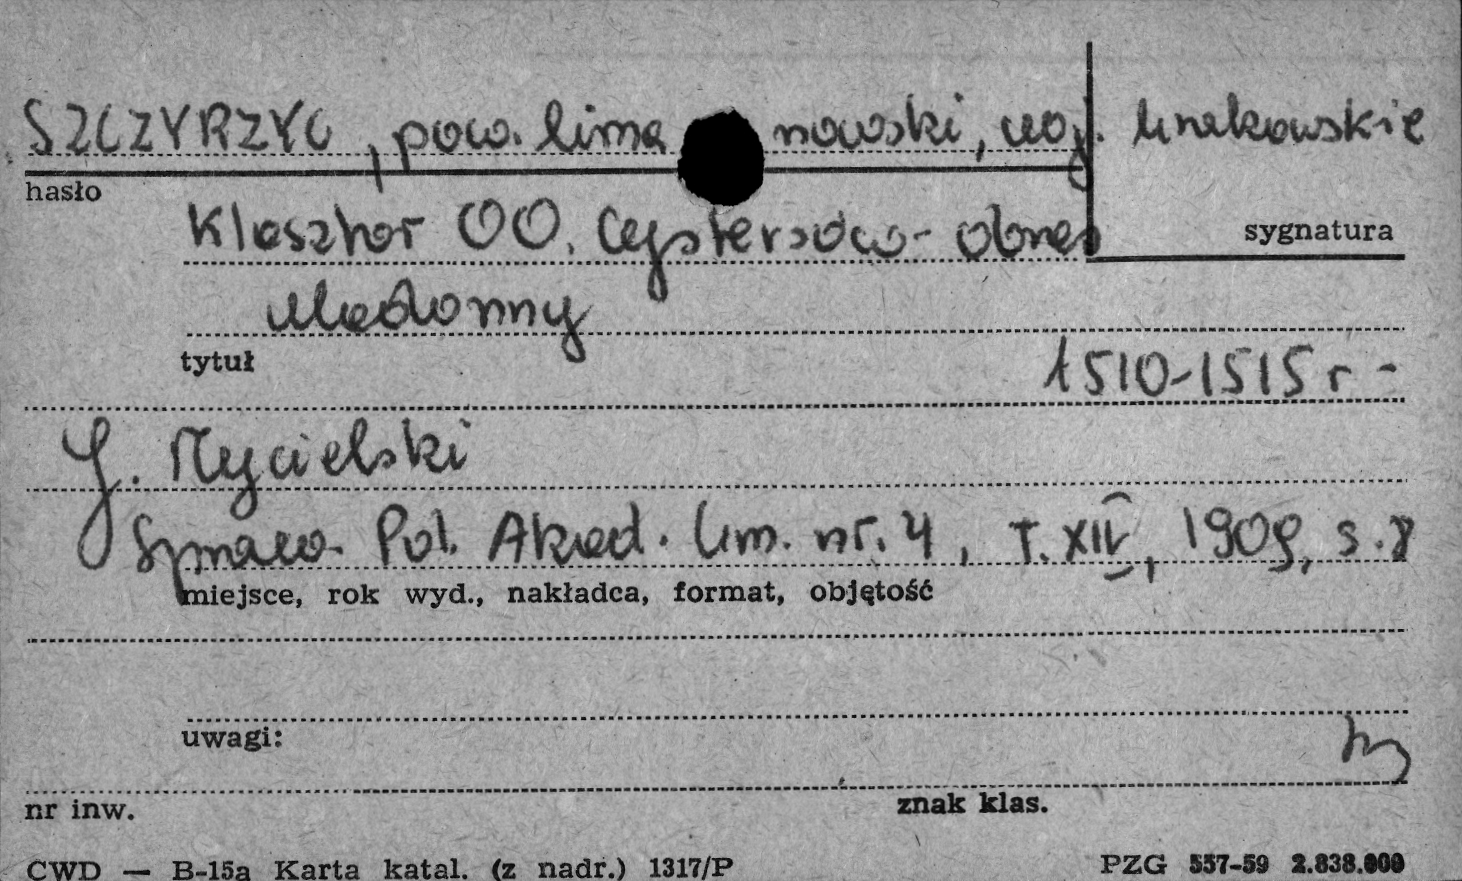 SZCZYRZYC, pow. limanowski, woj. krakowskie
hasło
sygnatura
Klasztor OO. Cystersów - obraz
Madonny
tytuł
1510-1515 r -
J. Mycielski
Sprawo. Pol. Akad. Um. nr. 4, T. XIV, 1909, s. 8
miejsce, rok wyd., nakładca, format, objętość
uwagi:
nr inw.
znak klas.
CWD — B-15a Karta katal. (z nadr.) 1317/P
PZG 557-59 2.838.000